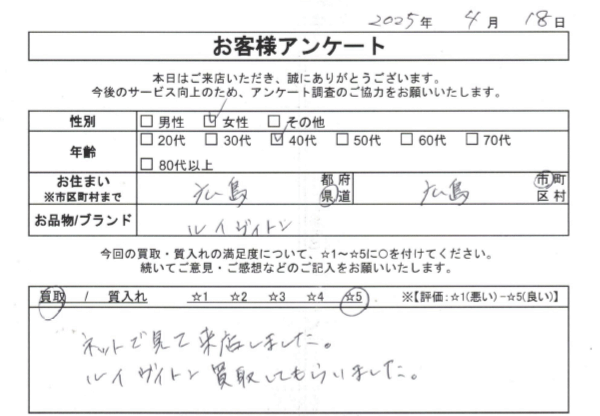 2025年 4月 18日
お客様アンケート
本日はご来店いただき、誠にありがとうございます。
今後のサービス向上のため、アンケート調査のご協力をお願いいたします。
性別 □ 男性 ☑ 女性 □ その他
年齢 □ 20代 □ 30代 ☑ 40代 □ 50代 □ 60代 □ 70代
□ 80代以上
お住まい ※市区町村まで 広島 都府県道 広島 市町区村
お品物/ブランド ルイヴィトン
今回の買取・質入れの満足度について、☆1～☆5に○を付けてください。
続いてご意見・ご感想などのご記入をお願いいたします。
買取 / 質入れ ☆1 ☆2 ☆3 ☆4 ☆5 ※【評価:☆1(悪い)-☆5(良い)】
ネットで見て来店しました。
ルイヴィトン買取してもらいました。